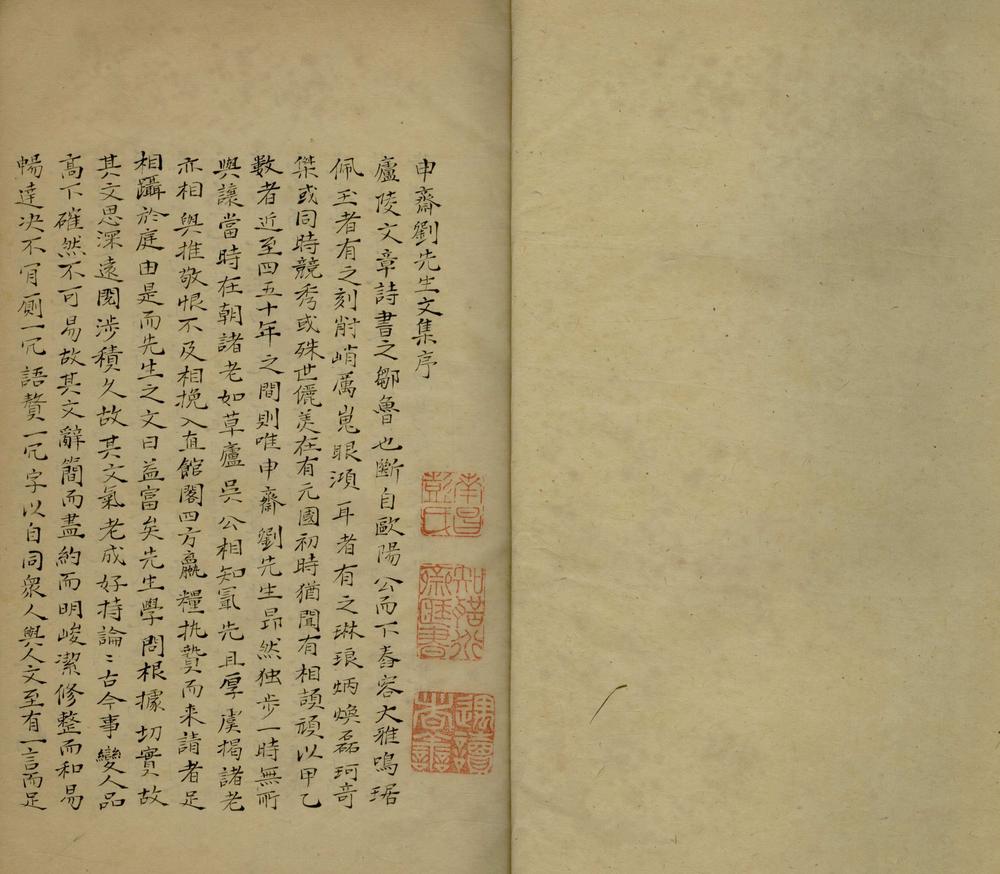 申齋劉先生文集序
廬陵文章詩書之鄒魯也斷自歐陽公而下舂容大雅鳴琚
佩玉者有之刻削峭厲嵬眼澒耳者有之琳琅炳煥磊珂奇
傑或同時競秀或殊世儷美在有元國初時猶聞有相頡頏以甲乙
数者近至四五十年之間則唯申齋劉先生昻然独步一時無所
與讓當時在朝諸老如草廬吳公相知冣先且厚虞揭諸老
亦相與推敬恨不及相挽入直館閣四方羸糧执贄而来請者足
相躡於庭由是而先生之文日益富矣先生學問根據切實故
其文思深遠閱涉積久故其文氣老成好持論〻古今事變人品
高下確然不可易故其文辭簡而盡約而明峻潔修整而和易
暢達决不肎厠一冗語贅一冗字以自同衆人與人文至有一言而足
南昌彭氏
知聖道齋藏書
遇讀者善